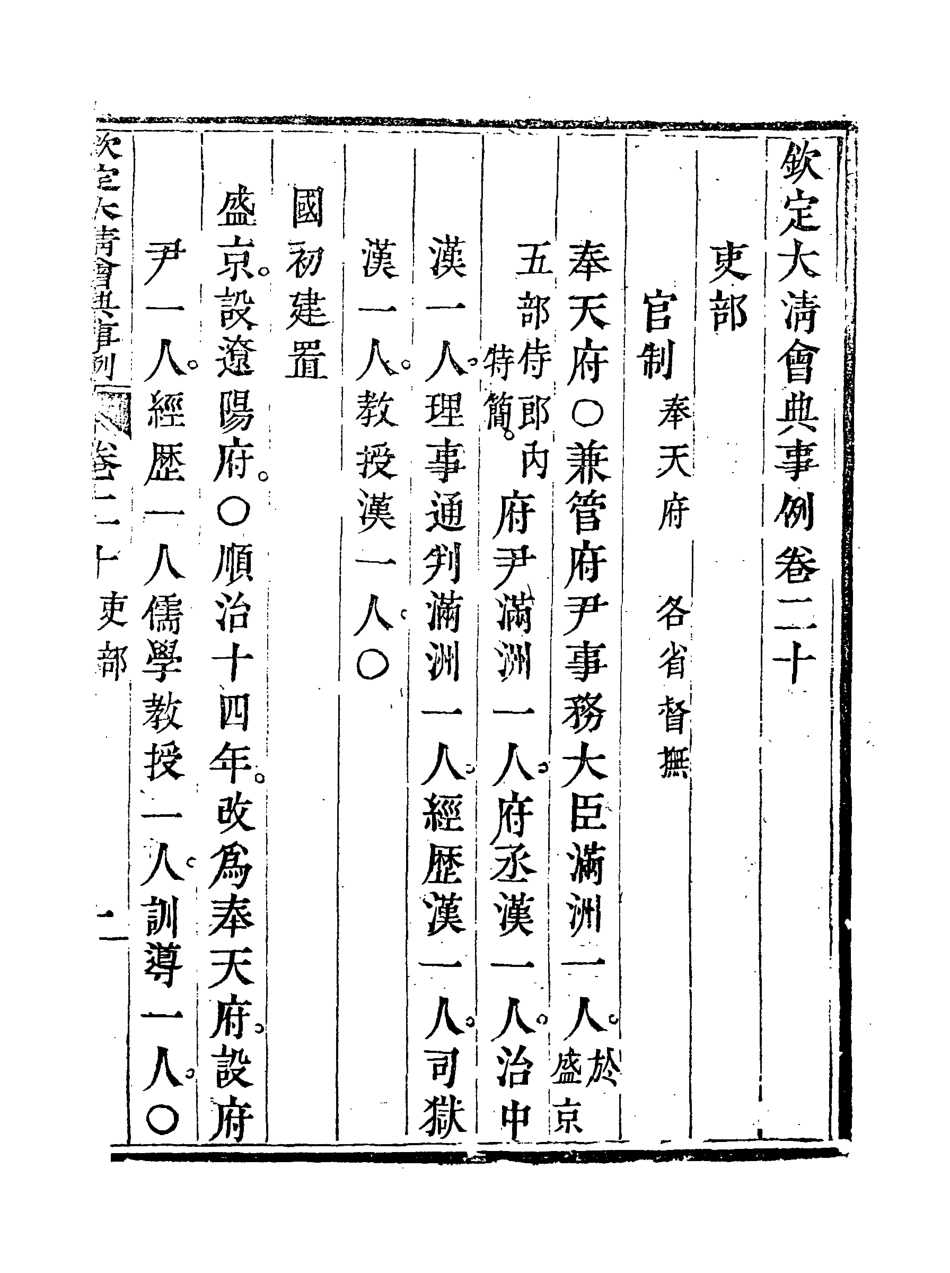 欽定大淸會典事例卷二十
吏部
官制 奉天府 各省督撫
奉天府○兼管府尹事務大臣滿洲一人。於盛京
五部侍郎內特簡。府尹滿洲一人。府丞漢一人。治中
漢一人。理事通判滿洲一人。經歷漢一人。司獄
漢一人。教授漢一人。○
國初建置
盛京。設遼陽府。○順治十四年。改爲奉天府。設府
尹一人。經歷一人儒學教授一人。訓導一人。○
欽定大淸會典事例 卷二十 吏部 二